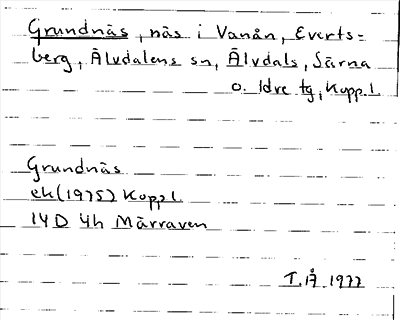 Grundnäs, näs i Vanån, Everts=
berg, Älvdalens sn, Älvdals, Särna
o. Idre tg, Kopp.l.
Grundnäs
ek(1975) Kopp l.
14D 4h Märraven
T.Å 1977